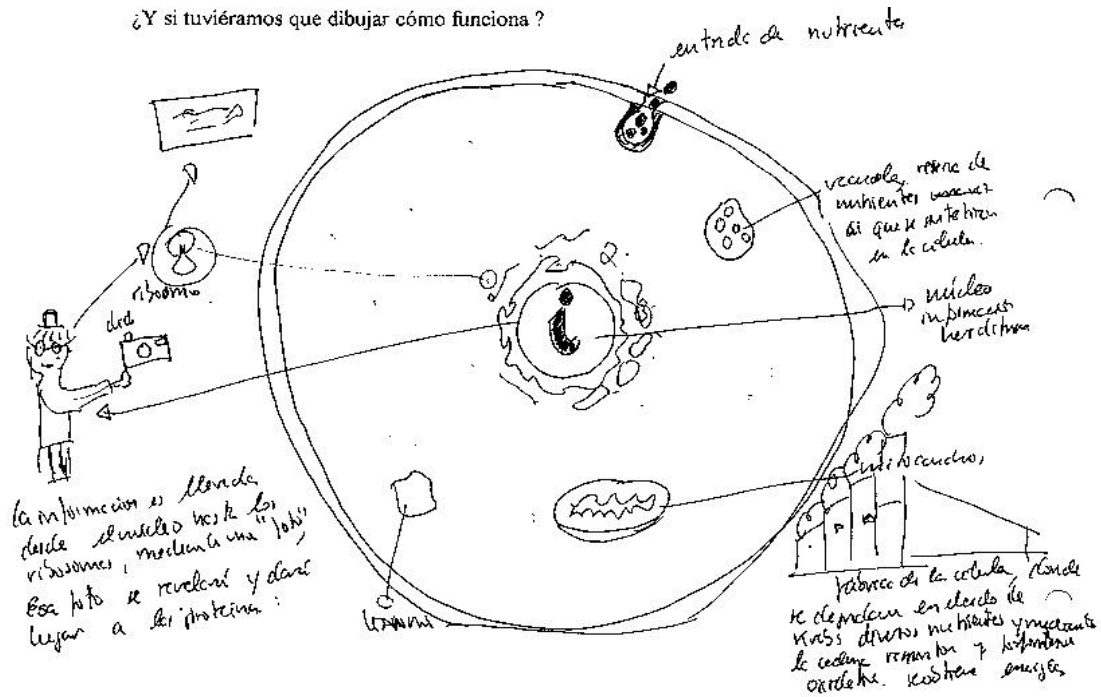 ¿Y si tuviéramos que dibujar cómo funciona ?
entrada de nutrientes
vacuola, reserva de
nutrientes
que se sintetizan
en la célula.
núcleo
información
hereditaria
ribosoma
click
mitocondria,
La información es llevada
desde el núcleo hasta los
ribosomas, mediante una "foto",
Esa foto se revelará y dará
lugar a las proteínas :
lisosoma
fábrica de la célula, donde
se degradan en el ciclo de
Krebs diversos nutrientes y mediante
la cadena respiratoria y fosforilación
oxidativa. se obtiene energía